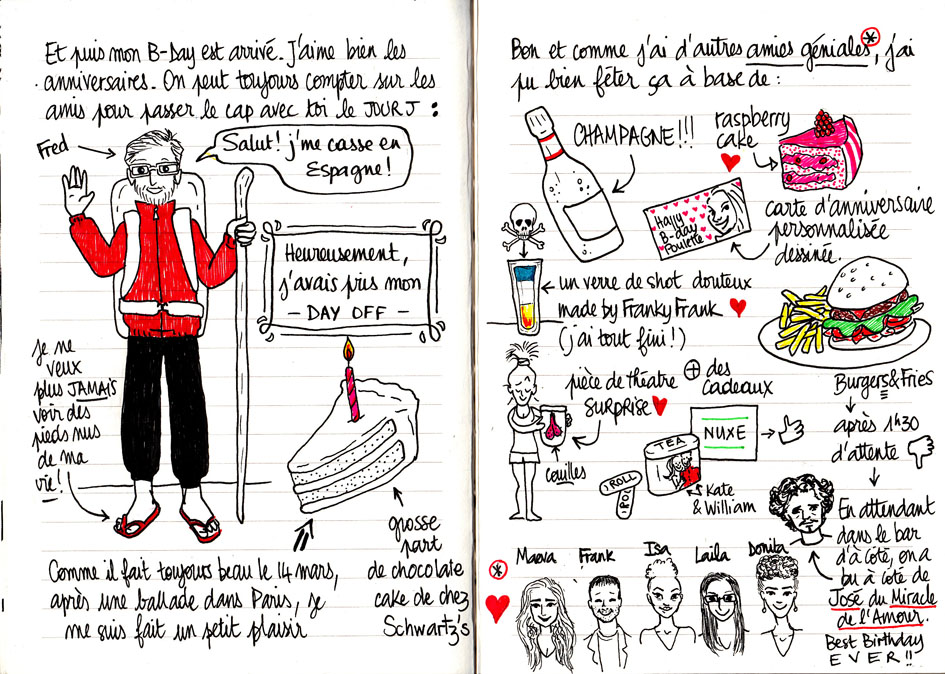 Et puis mon B-Day est arrivé. J'aime bien les
anniversaires. On peut toujours compter sur les
amis pour passer le cap avec toi le JOUR J :
Fred
Salut! j'me casse en
Espagne!
Heureusement,
j'avais pris mon
- DAY OFF -
je ne
veux
plus JAMAIS
voir des
pieds nus
de ma
vie!
grosse
part
de chocolate
cake de chez
Schwartz's
Comme il fait toujours beau le 14 mars,
après une ballade dans Paris, je
me suis fait un petit plaisir
Bon et comme j'ai d'autres amies géniales*, j'ai
pu bien fêter ça à base de :
CHAMPAGNE!!!
raspberry
cake
Happy
B-day
Poulette
carte d'anniversaire
personnalisée
dessinée.
un verre de shot douteux
made by Franky Frank
(j'ai tout fini!)
pièce de théatre
SURPRISE
couilles
+ des
cadeaux
NUXE
TEA
J ROLL
J ROLL
Kate
& William
Burgers & Fries
après 1h30
d'attente
En attendant
dans le bar
d'à côté, on a
bu à côté de
José du Miracle
de l'Amour.
Best Birthday
EVER!!
*
Maeva
Frank
Isa
Laila
Donita